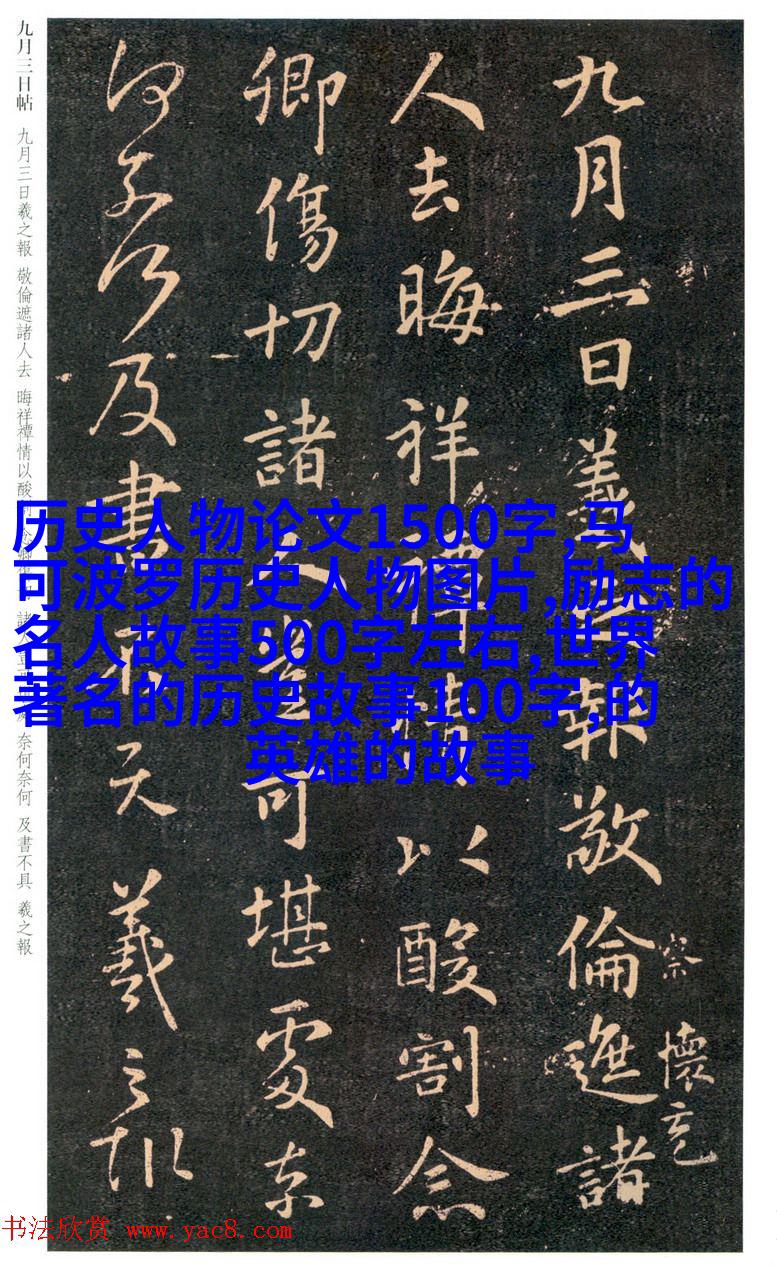 九月三日羲之報敬倫遮諸
察 懷充
人去晦祥禫情以酸割念
卿傷切諸人豈可堪處奈
何奈何及書不具羲之報
九月三日帖 九月三日羲之報 敬倫遮諸人去 晦祥禫情以酸 諸 奈何奈何 及書不具 羲之報
历史人物论文1500字,马
可波罗历史人物图片,励志的
名人故事500字左右,世界
著名的历史故事100字,的
英雄的故事
书法欣赏 www.yac8.com